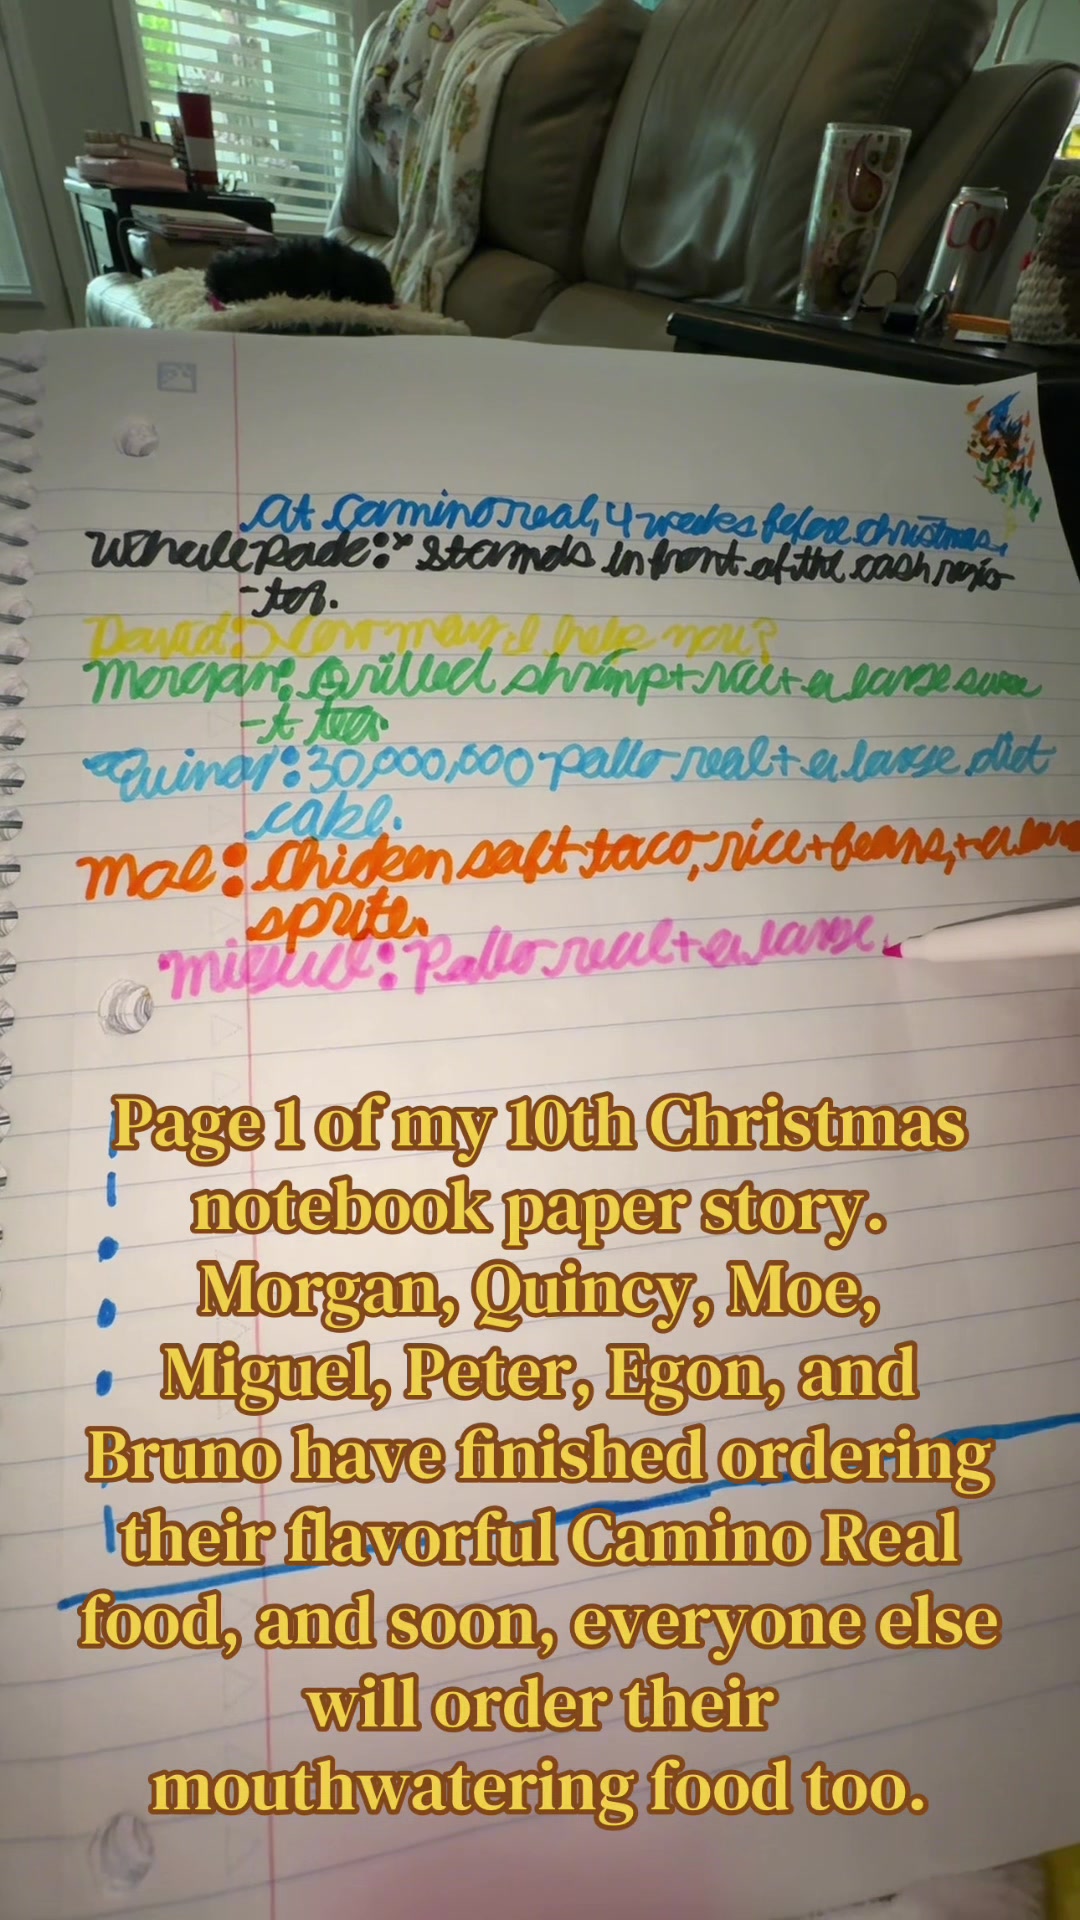 At Camino real, 4 weeks before christmas.
Whale Pade:* stands in front of the cash regis
-ter.
David: How may I help you?
Morgan: Grilled shrimp+rice+a large swee
-t tea.
Quincy: 30,000,000 pollo real+a large diet
coke.
Moe: Chicken soft taco, rice+beans,+a large
sprite.
Miguel: Pollo real+a large
Co
Page 1 of my 10th Christmas
notebook paper story.
Morgan, Quincy, Moe,
Miguel, Peter, Egon, and
Bruno have finished ordering
their flavorful Camino Real
food, and soon, everyone else
will order their
mouthwatering food too.